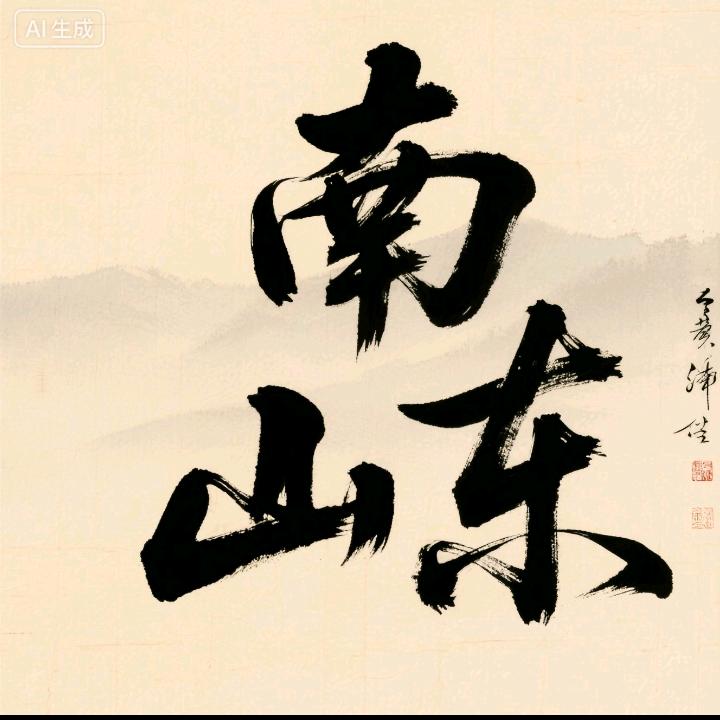 AI生成
南
山东